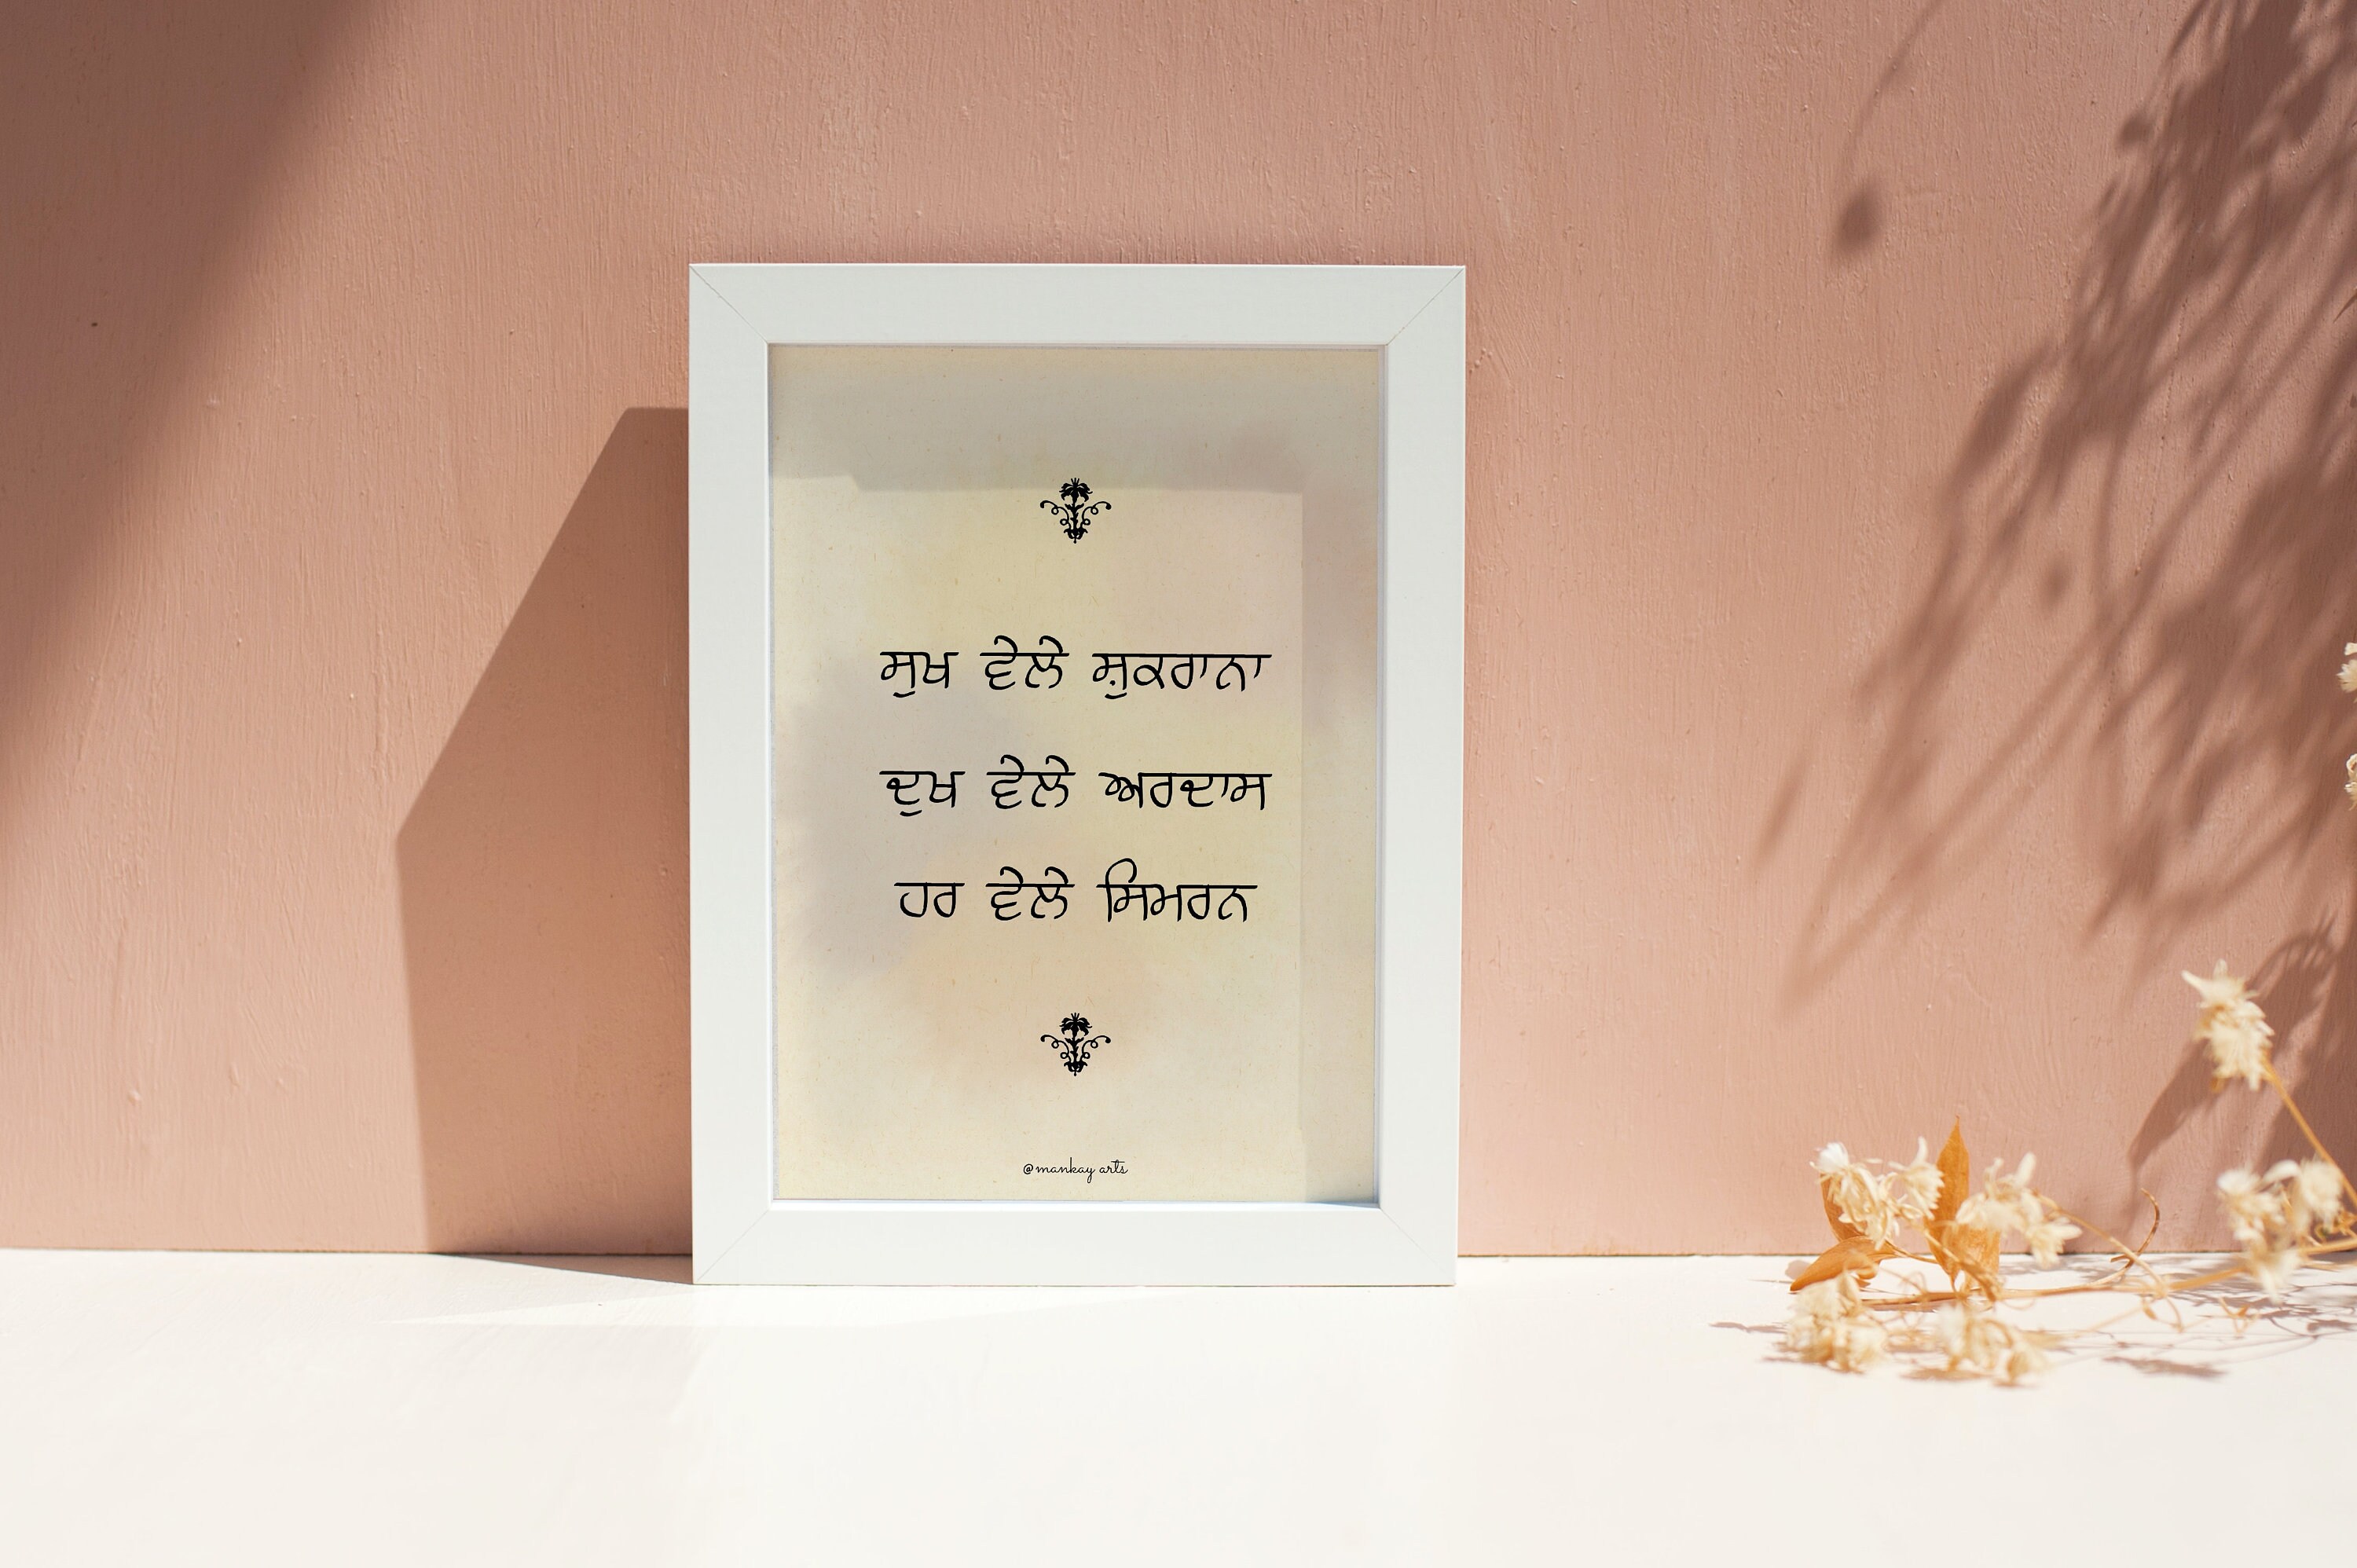 ਸੁਖ ਵੇਲੇ ਸ਼ੁਕਰਾਨਾ
ਦੁਖ ਵੇਲੇ ਅਰਦਾਸ
ਹਰ ਵੇਲੇ ਸਿਮਰਨ
@mankay arts